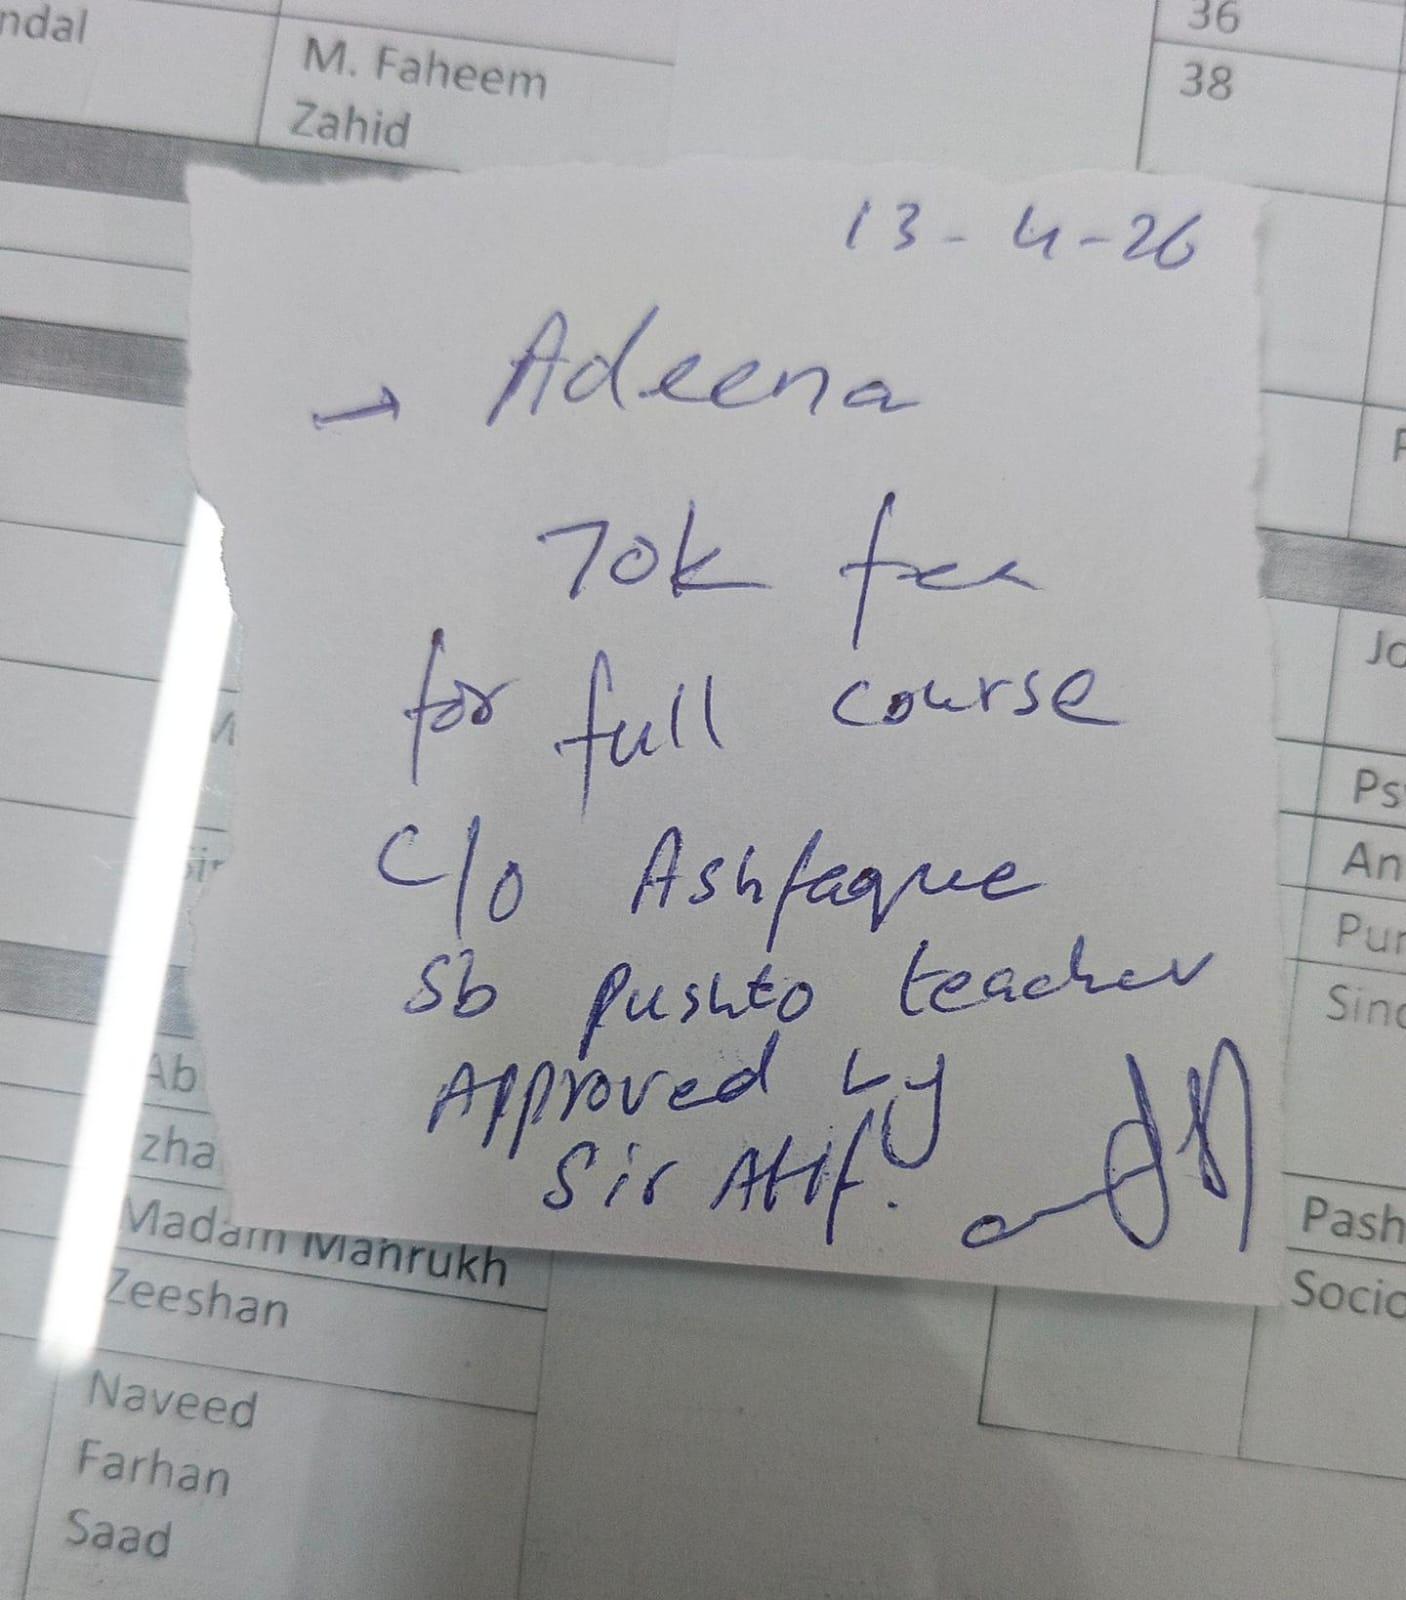 ndal
M. Faheem
Zahid
36
38
13-4-26
→ Adeena
70k fee
for full course
C/o Ashfaque
Sb Pushto teacher
Approved by
Sir Atif.
Ab
zha
Madam Mahrukh
Zeeshan
Naveed
Farhan
Saad
Jo
Ps
An
Pur
Sind
Pash
Socio